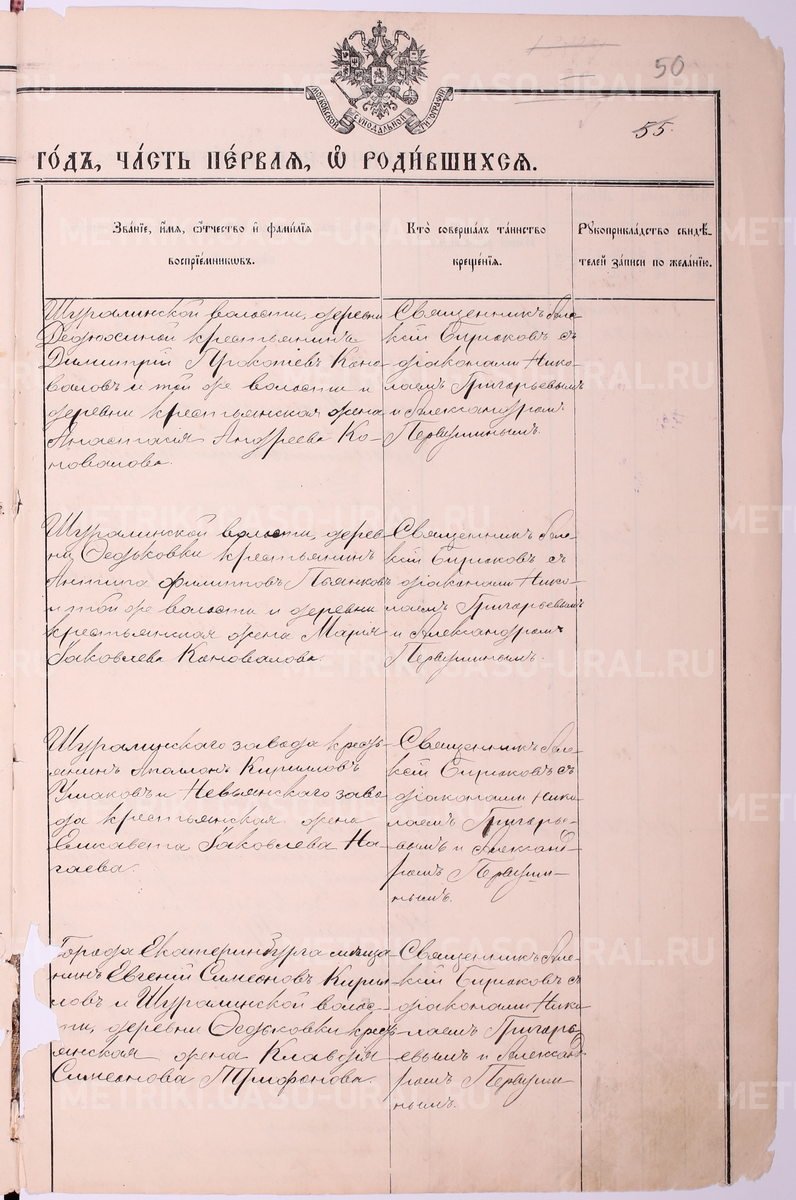 50
55.
МОСКОВСКОЙ СѴНОДАЛЬНОЙ ТИПОГРАФІИ
ГО́ДЪ, ЧА́СТЬ ПЕ́РВАЯ, Ѽ РОДИ́ВШИХСЯ.
Зва́нїе, и́мя, ѻ҆́тчество и҆ фами́лїя
воспрїе́мниковъ.
Кто̀ соверша́лъ та́инство
креще́нїя.
Рꙋкоприкла́дство свидѣ́-
телей за́писи по жела́нїю.
Шуралинской волости, деревни
Ѳедюхиной крестьянинъ
Димитрій Прокопіевъ Коно-
валовъ и той же волости и
деревни крестьянская жена
Анастасія Андреева Ко-
новалова.
Священникъ Але-
ксій Бирюковъ съ
діаконами Нико-
лаемъ Григорьевымъ
и Александромъ
Первушинымъ.
Шуралинской волости, дерев-
ни Ѳедьковки крестьянинъ
Антипа Филипповъ Пьянковъ
и той же волости и деревни
крестьянская жена Марія
Яковлева Коновалова.
Священникъ Але-
ксій Бирюковъ съ
діаконами Нико-
лаемъ Григорьевымъ
и Александромъ
Первушинымъ.
Шуралинскаго завода кресть-
янинъ Аполлонъ Кирилловъ
Ушаковъ и Невьянскаго заво-
да крестьянская жена
Елисавета Яковлева На-
гаева.
Священникъ Але-
ксій Бирюковъ съ
діаконами Нико-
лаемъ Григорье-
вымъ и Александ-
ромъ Первуши-
нымъ.
Города Екатеринбурга мѣща-
нинъ Евгеній Симеоновъ Кирил-
ловъ и Шуралинской воло-
сти, деревни Ѳедьковки кресть-
янская жена Клавдія
Симеонова Трифонова.
Священникъ Але-
ксій Бирюковъ съ
діаконами Нико-
лаемъ Григорь-
евымъ и Александ-
ромъ Первуши-
нымъ.
METRIKI.GASO-URAL.RU